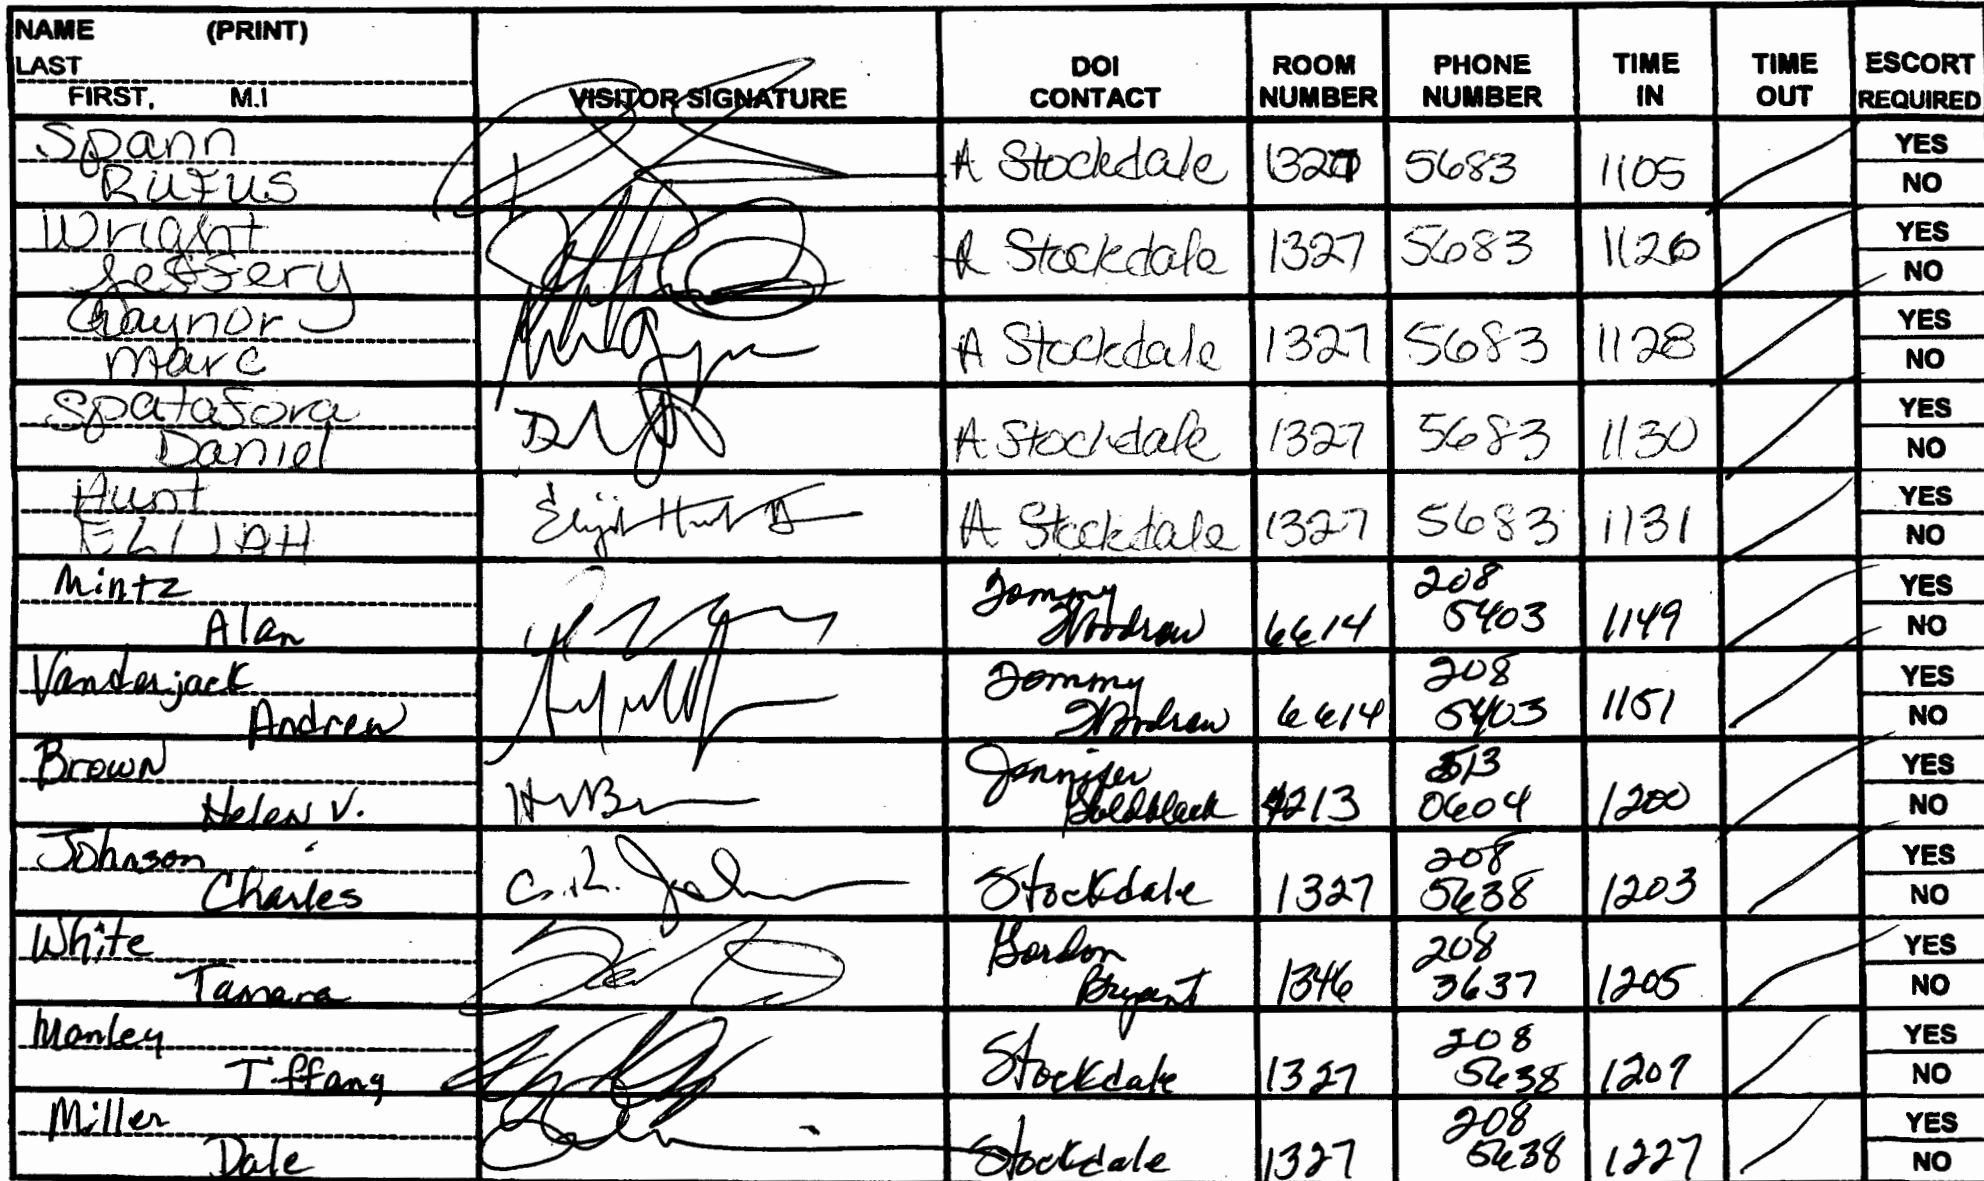 NAME (PRINT)
LAST
FIRST, M.I
VISITOR SIGNATURE
DOI CONTACT
ROOM NUMBER
PHONE NUMBER
TIME IN
TIME OUT
ESCORT REQUIRED
Spann
Rufus
A Stockdale 1327 5683 1105
YES
NO
Wright
Jeffery
A Stockdale 1327 5683 1126
YES
NO
Gaynor
Marc
A Stockdale 1327 5683 1128
YES
NO
Spatafora
Daniel
A Stockdale 1327 5683 1130
YES
NO
Hunt
ELIJAH
Elijah Hunt
A Stockdale 1327 5683 1131
YES
NO
Mintz
Alan
Tommy
Woodrow
6614
208
5403
1149
YES
NO
Vanderjack
Andrew
Tommy
Woodrow
6614
208
5403
1151
YES
NO
Brown
Helen V.
Jennifer
Goldblack
4213
513
0604
1200
YES
NO
Johnson
Charles
Stockdale
1327
208
5638
1203
YES
NO
White
Tamara
Gordon
Bryant
1346
208
3637
1205
YES
NO
Manley
Tiffany
Stockdale
1327
208
5638
1207
YES
NO
Miller
Dale
Stockdale
1327
208
5638
1227
YES
NO